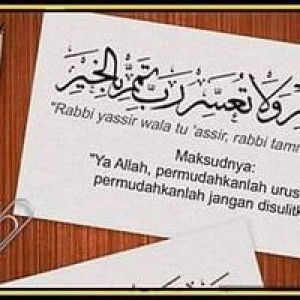 ولا تعسر رب تمم بالخير
"Rabbi yassir wala tu 'assir, rabbi
Maksudnya:
"Ya Allah, permudahkanlah
permudahkanlah jangan